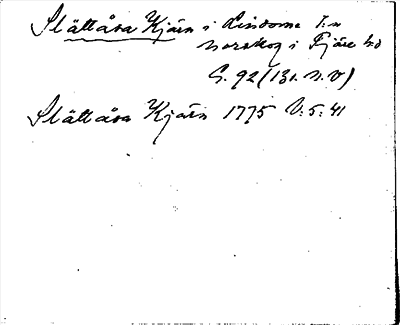 Slättåsa Kjärn i Lindome s:n
norskog i Fjäre hd
S. 92 (131 n.v)
Slättåsa Kjärn 1775 V:5:41